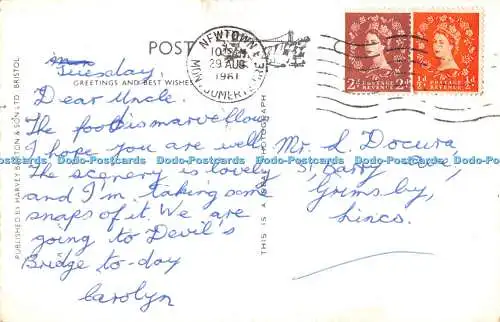 POST
NEWTOWN
10 15AM
29 AUG
1961
MONTGOMERYSHIRE
2D POSTAGE REVENUE 2D
½D POSTAGE REVENUE ½D
GREETINGS AND BEST WISHES
Tuesday,
Dear Uncle.
The food is marvellous
I hope you are well
The scenery is lovely
and I'm taking some
snaps of it. We are
going to Devil's
Bridge to-day
Carolyn
PUBLISHED BY HARVEY BARTON & SON LTD BRISTOL
THIS IS A REAL PHOTOGRAPH
Mr. L. Docura,
5, Barry
Grimsby,
Lincs.
Dodo-Postcards Dodo-Postcards Dodo-Postcards Dodo-Postcards Dodo-Postcards